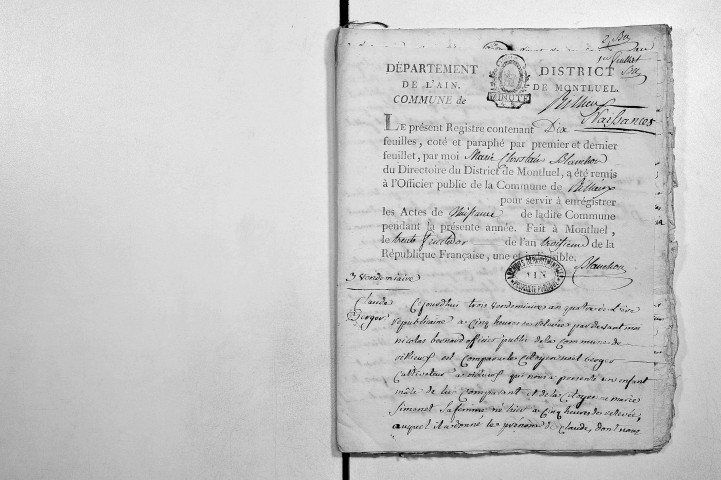 DÉPARTEMENT
DE L'AIN.
COMMUNE de
DISTRICT
DE MONTLUEL.
Naissances
LE présent Registre contenant Dix
feuilles, coté et paraphé par premier et dernier
feuillet, par moi Marie Blanchon
du Directoire du District de Montluel, a été remis
à l'Officier public de la Commune de
pour servir à enrégistrer
les Actes de Naissance de ladite Commune
pendant la présente année. Fait à Montluel,
le trente fructidor de l'an troisieme de la
République Française, une et indivisible.
Blanchon
ARCHIVES DÉPARTEMENTALES
AIN
3 vendemiaire
Claude
Berger
Cejourdhui trois vendemiaire an quatre de l'ère
republicaine a cinq heures de relevée par devant moi
nicolas bernard officier public de la commune de
est comparu le Citoyen noel berger
Cultivateur qui nous a presenté un enfant
mâle de lui comparant et de la Citoyenne marie
simonet sa femme né hier a cinq heures de relevée,
auquel il a donné le prenom de claude, dont nous